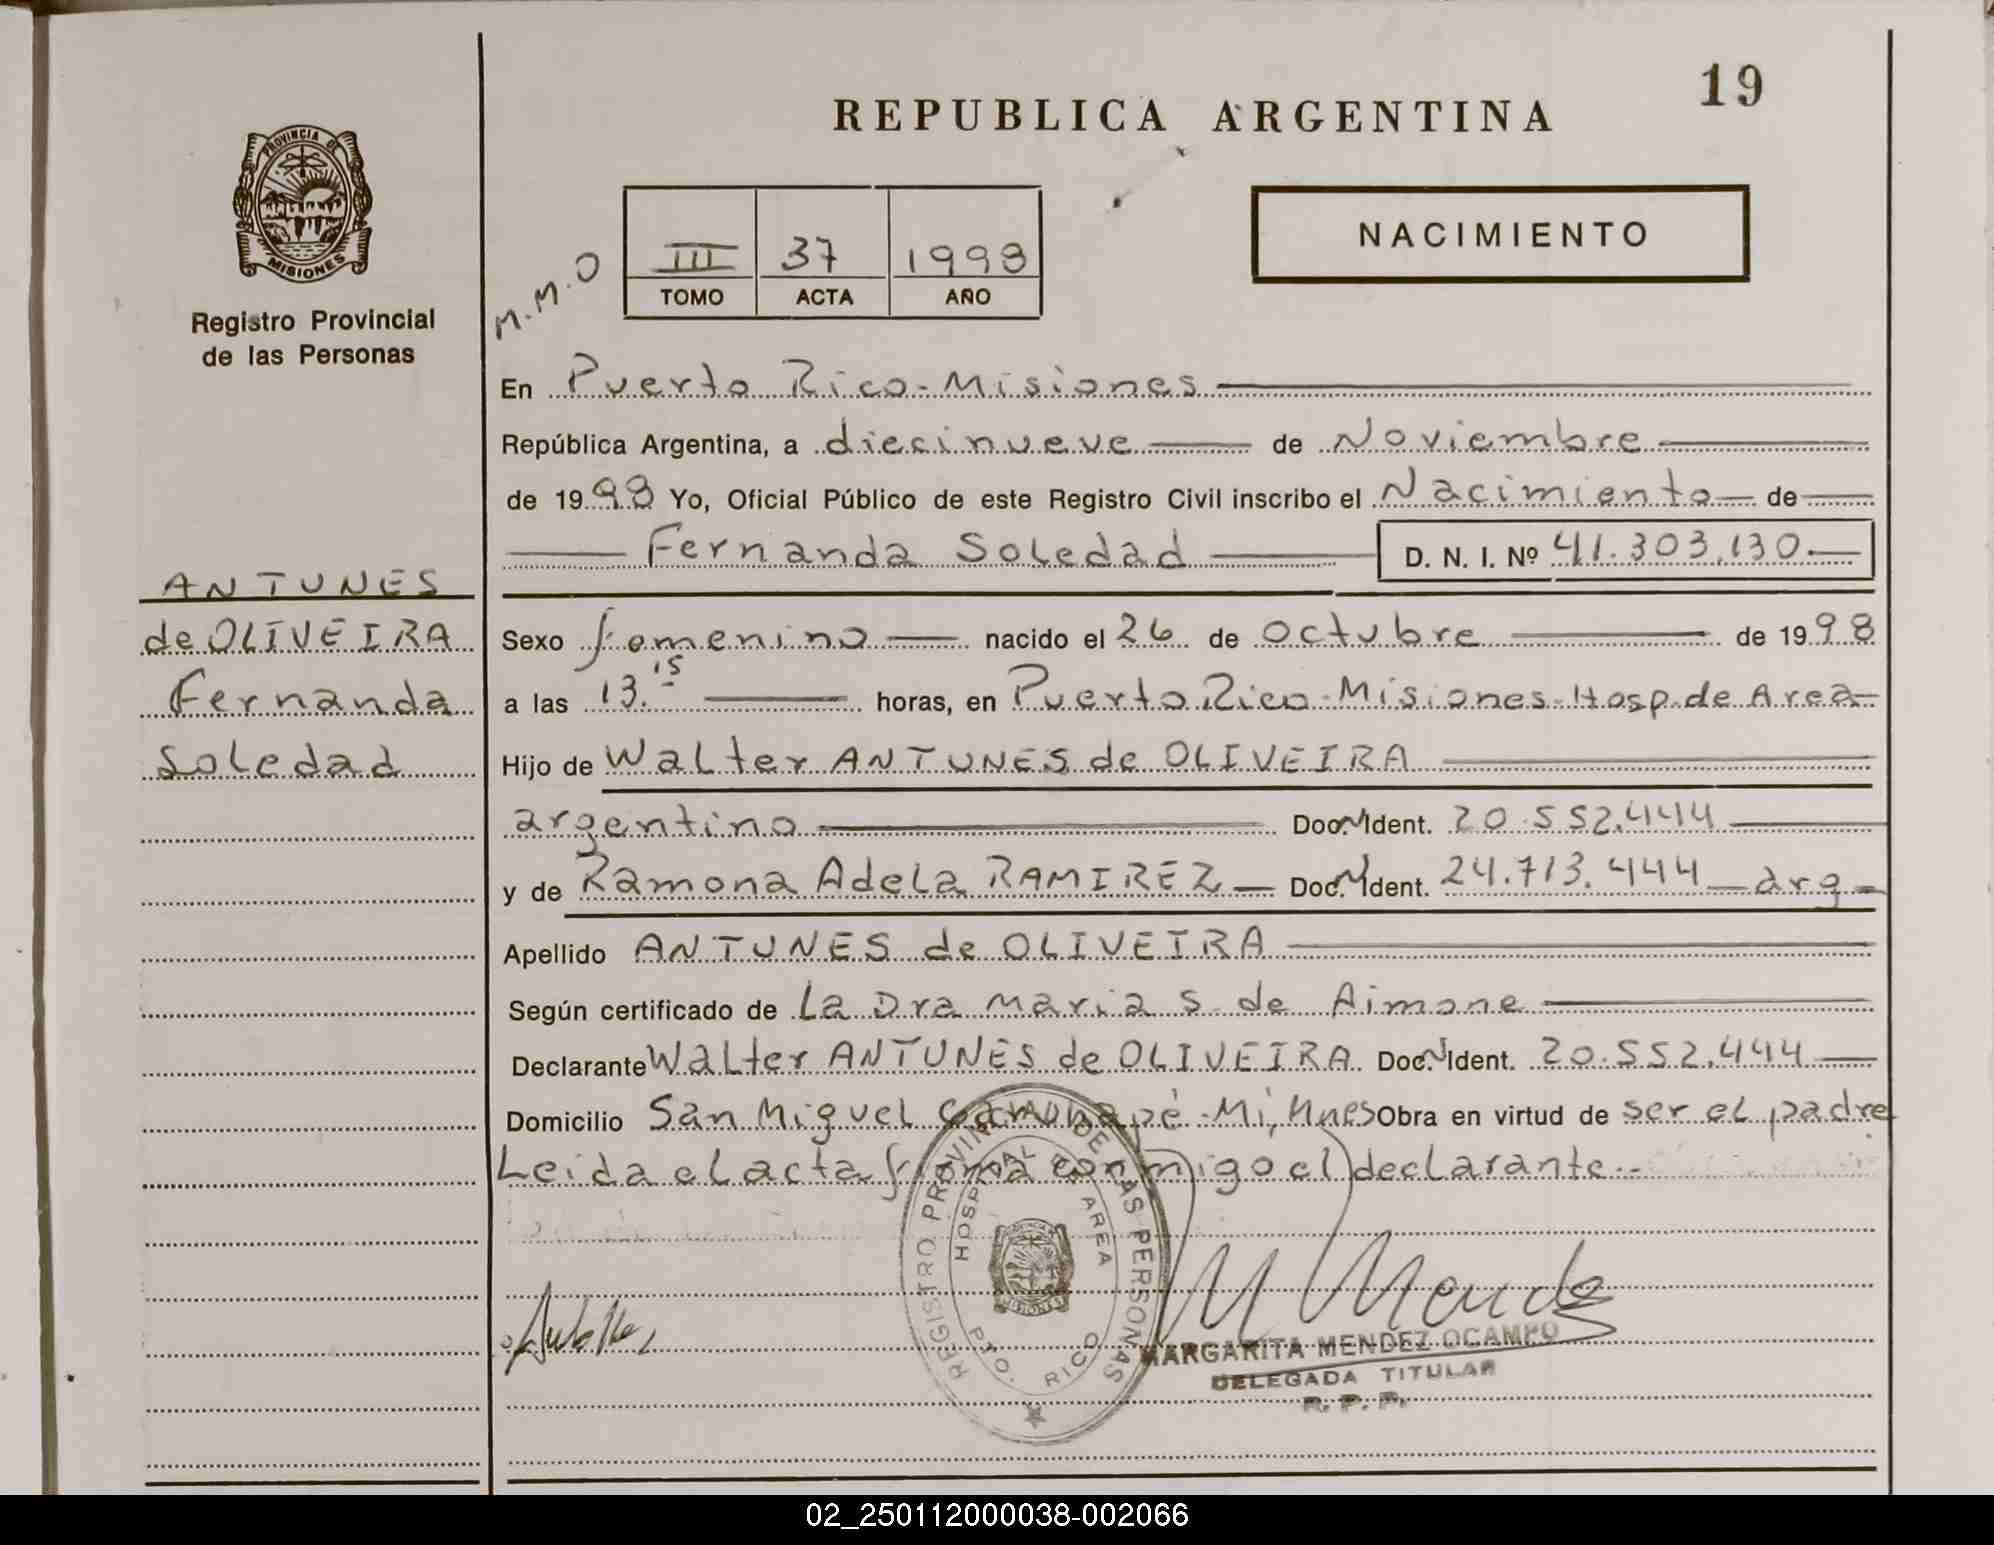 19
REPUBLICA ARGENTINA
PROVINCIA DE
MISIONES
Registro Provincial
de las Personas
NACIMIENTO
M.M.O
III 37 1998
TOMO ACTA AÑO
En Puerto Rico-Misiones
República Argentina, a diecinueve de Noviembre
de 1998 Yo, Oficial Público de este Registro Civil inscribo el Nacimiento de
Fernanda Soledad D. N. I. Nº 41.303.130
ANTUNES
de OLIVEIRA
Fernanda
Soledad
Sexo femenino nacido el 26 de Octubre de 1998
a las 13.15 horas, en Puerto Rico-Misiones-Hosp.de Area
Hijo de Walter ANTUNES de OLIVEIRA
argentino Doc. Ident. 20.552.444
y de Ramona Adela RAMIREZ Doc. Ident. 24.713.444 arg
Apellido ANTUNES de OLIVEIRA
Según certificado de La Dra Maria S de Aimone
Declarante Walter ANTUNES de OLIVEIRA Doc. Ident. 20.552.444
Domicilio San Miguel Obra en virtud de ser el padre
Leida el acta firma conmigo el declarante
REGISTRO PROVINCIAL DE LAS PERSONAS
HOSPITAL DE AREA
PTO. RICO
MISIONES
MARGARITA MENDEZ OCAMPO
DELEGADA TITULAR
R. P. P.
02_250112000038-002066